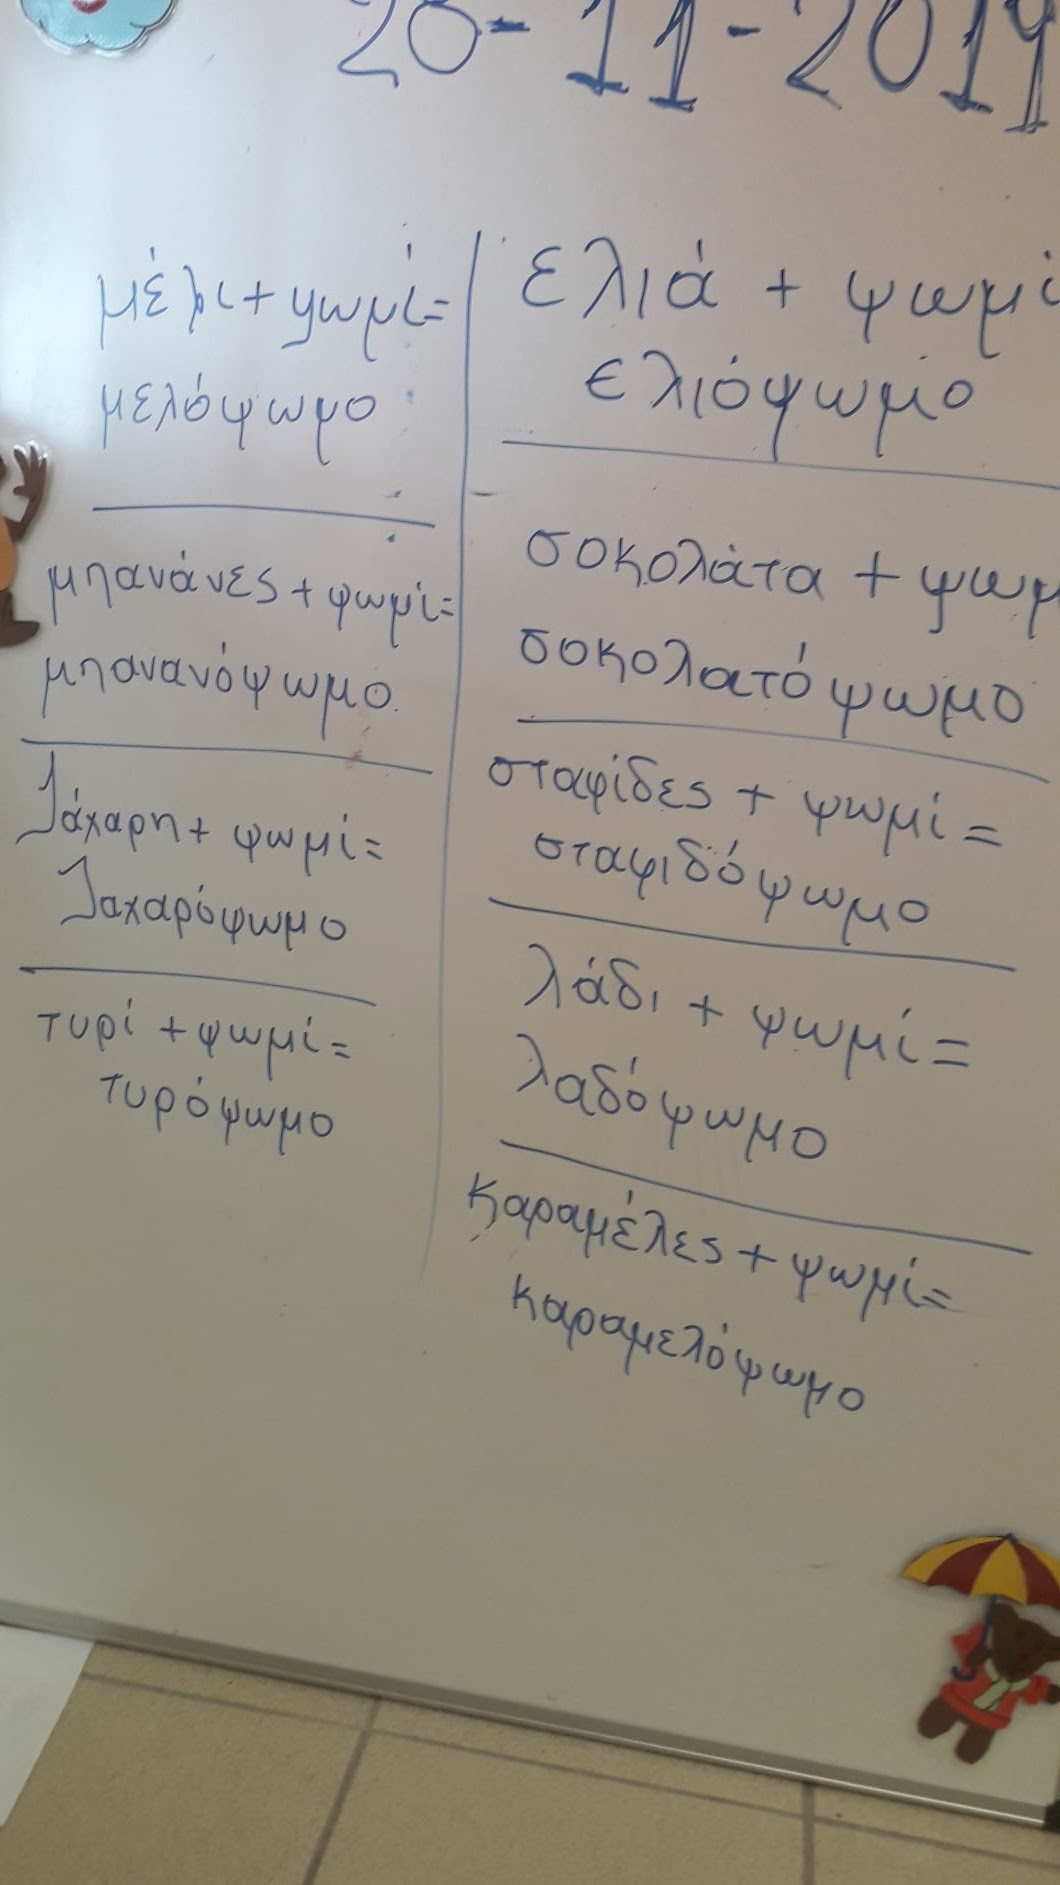 26-11-2019
μέλι + ψωμί =
μελόψωμο
μπανάνες + ψωμί =
μπανανόψωμο
ζάχαρη + ψωμί =
ζαχαρόψωμο
τυρί + ψωμί =
τυρόψωμο
ελιά + ψωμί
ελιόψωμο
σοκολάτα + ψωμ
σοκολατόψωμο
σταφίδες + ψωμί =
σταφιδόψωμο
λάδι + ψωμί =
λαδόψωμο
καραμέλες + ψωμί =
καραμελόψωμο